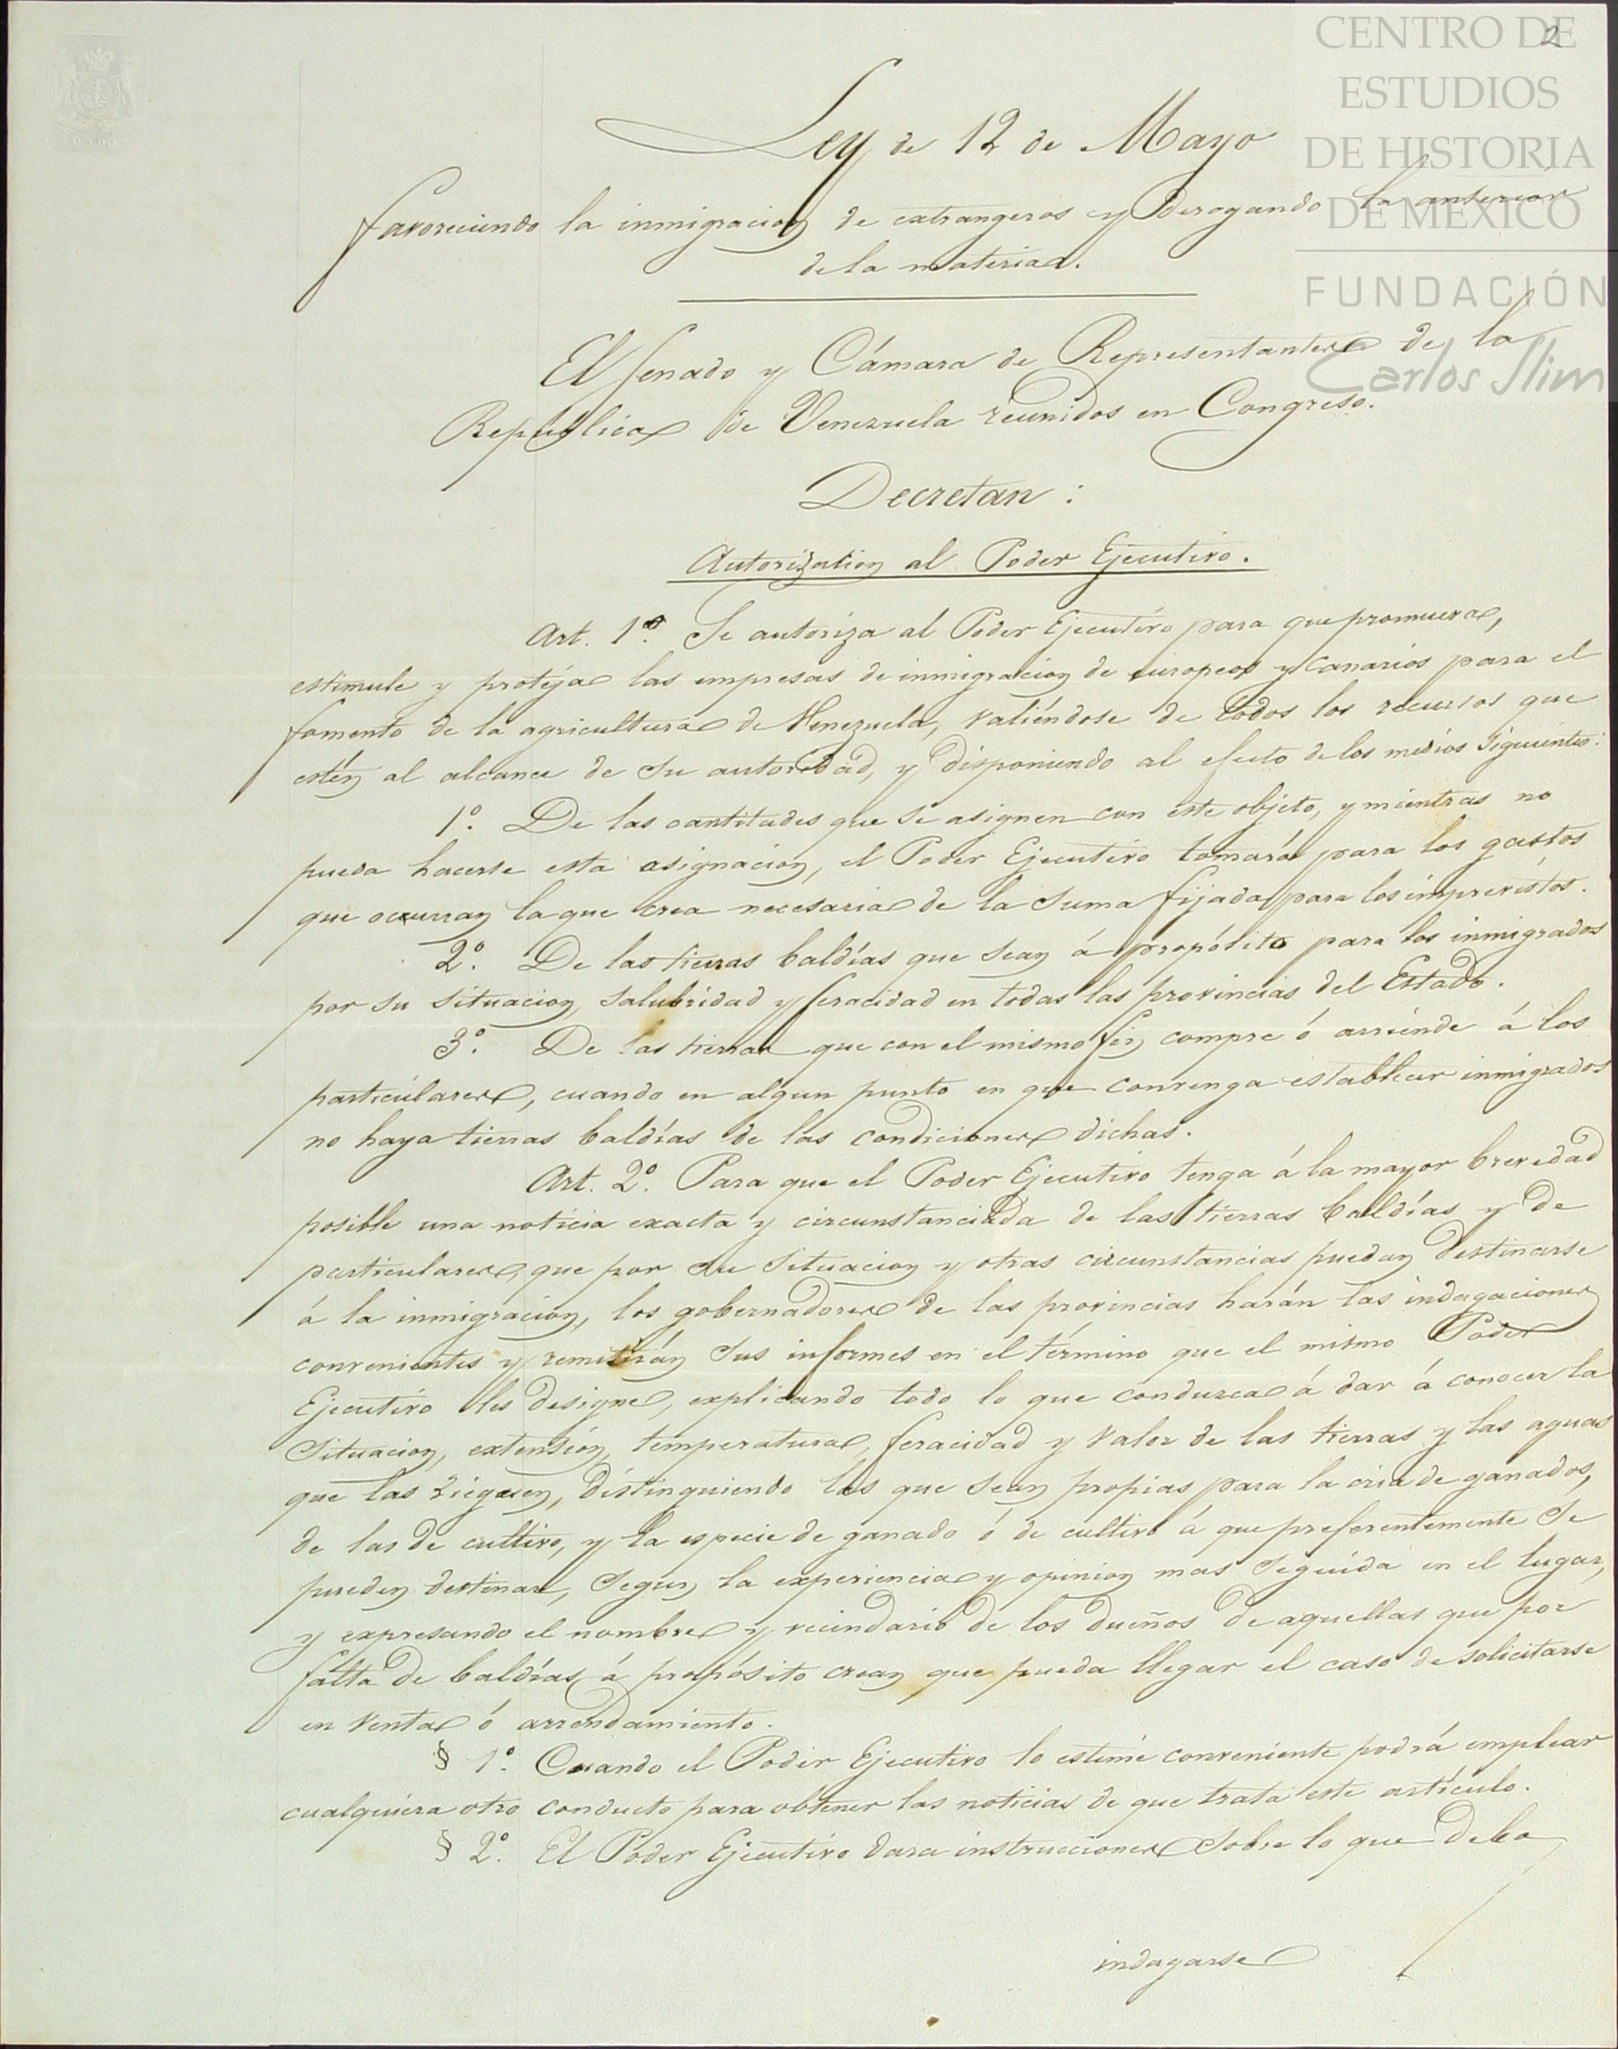 CENTRO DE
ESTUDIOS
DE HISTORIA
DE MÉXICO
FUNDACIÓN
Carlos Slim
2
Ley de 12 de Mayo
favoreciendo la inmigracion de extrangeros y derogando la anterior
de la materia.
El Senado y Cámara de Representantes de la
República de Venezuela reunidos en Congreso.
Decretan:
Autorization al Poder Ejecutivo.
Art. 1º. Se autoriza al Poder Ejecutivo para que promueva,
estimule y proteja las empresas de inmigracion de europeos y canarios para el
fomento de la agricultura de Venezuela, valiéndose de todos los recursos que
estén al alcance de su autoridad, y disponiendo al efecto de los medios siguientes:
1º. De las cantitades que se asignen con este objeto, y mientras no
pueda hacerse esta asignacion, el Poder Ejecutivo tomará para los gastos
que ocurran la que crea necesaria de la suma fijada para los imprevistos.
2º. De las tierras baldías que sean á propósito para los inmigrados
por su situacion, salubridad y feracidad en todas las provincias del Estado.
3º. De las tierras que con el mismo fin compre ó arriende á los
particulares, cuando en algun punto en que convenga establecer inmigrados
no haya tierras baldías de las condiciones dichas.
Art. 2º. Para que el Poder Ejecutivo tenga á la mayor brevedad
posible una noticia exacta y circunstanciada de las tierras baldías y de
particulares, que por su situacion y otras circunstancias puedan destinarse
á la inmigración, los gobernadores de las provincias harán las indagaciones
convenientes y remitirán sus informes en el término que el mismo Poder
Ejecutivo les designe, explicando todo lo que conduzca á dar á conocer la
situacion, extensión, temperatura, feracidad y valor de las tierras y las aguas
que las rieguen, distinguiendo las que sean propias para la cria de ganados,
de las de cultivo, y la especie de ganado ó de cultivo á que preferentemente se
pueden destinar, segun la experiencia y opinion mas seguida en el lugar,
y expresando el nombre y vecindario de los dueños de aquellas que por
falta de baldías á propósito crean que pueda llegar el caso de solicitarse
en venta ó arrendamiento.
§ 1º. Cuando el Poder Ejecutivo lo estime conveniente podrá emplear
cualquiera otro conducto para obtener las noticias de que trata este artículo.
§ 2º. El Poder Ejecutivo dara instrucciones sobre lo que deba
indagarse